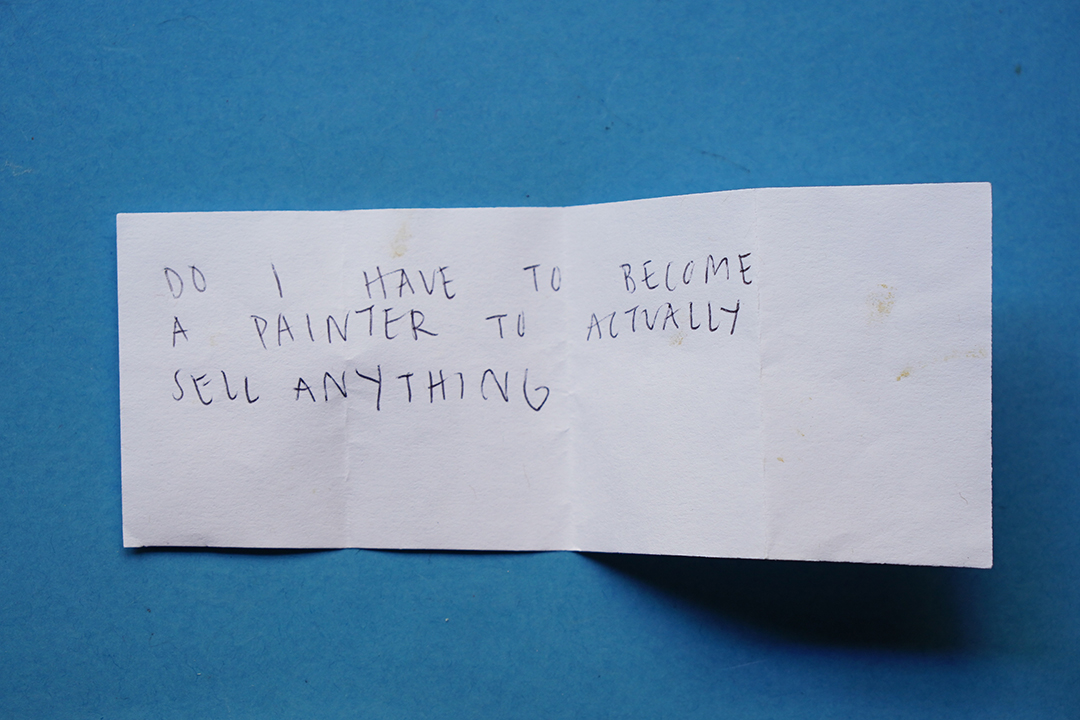 DO I HAVE TO BECOME
A PAINTER TO ACTUALLY
SELL ANYTHING